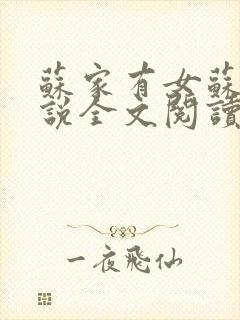 蘇家有女蘇
說全文閱讀
一夜飛仙